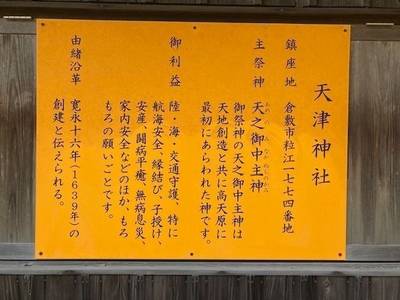 天津神社
鎮座地 倉敷市粒江一七七四番地
主祭神 天之御中主神
御祭神の天之御中主神は
天地創造と共に高天原に
最初にあらわれた神です。
御利益 陸・海・交通守護、特に
航海安全、縁結び、子授け、
安産、闘病平癒、無病息災、
家内安全などのほか、もろ
もろの願いごとです。
由緒沿革 寛永十六年(1639年)の
創建と伝えられる。